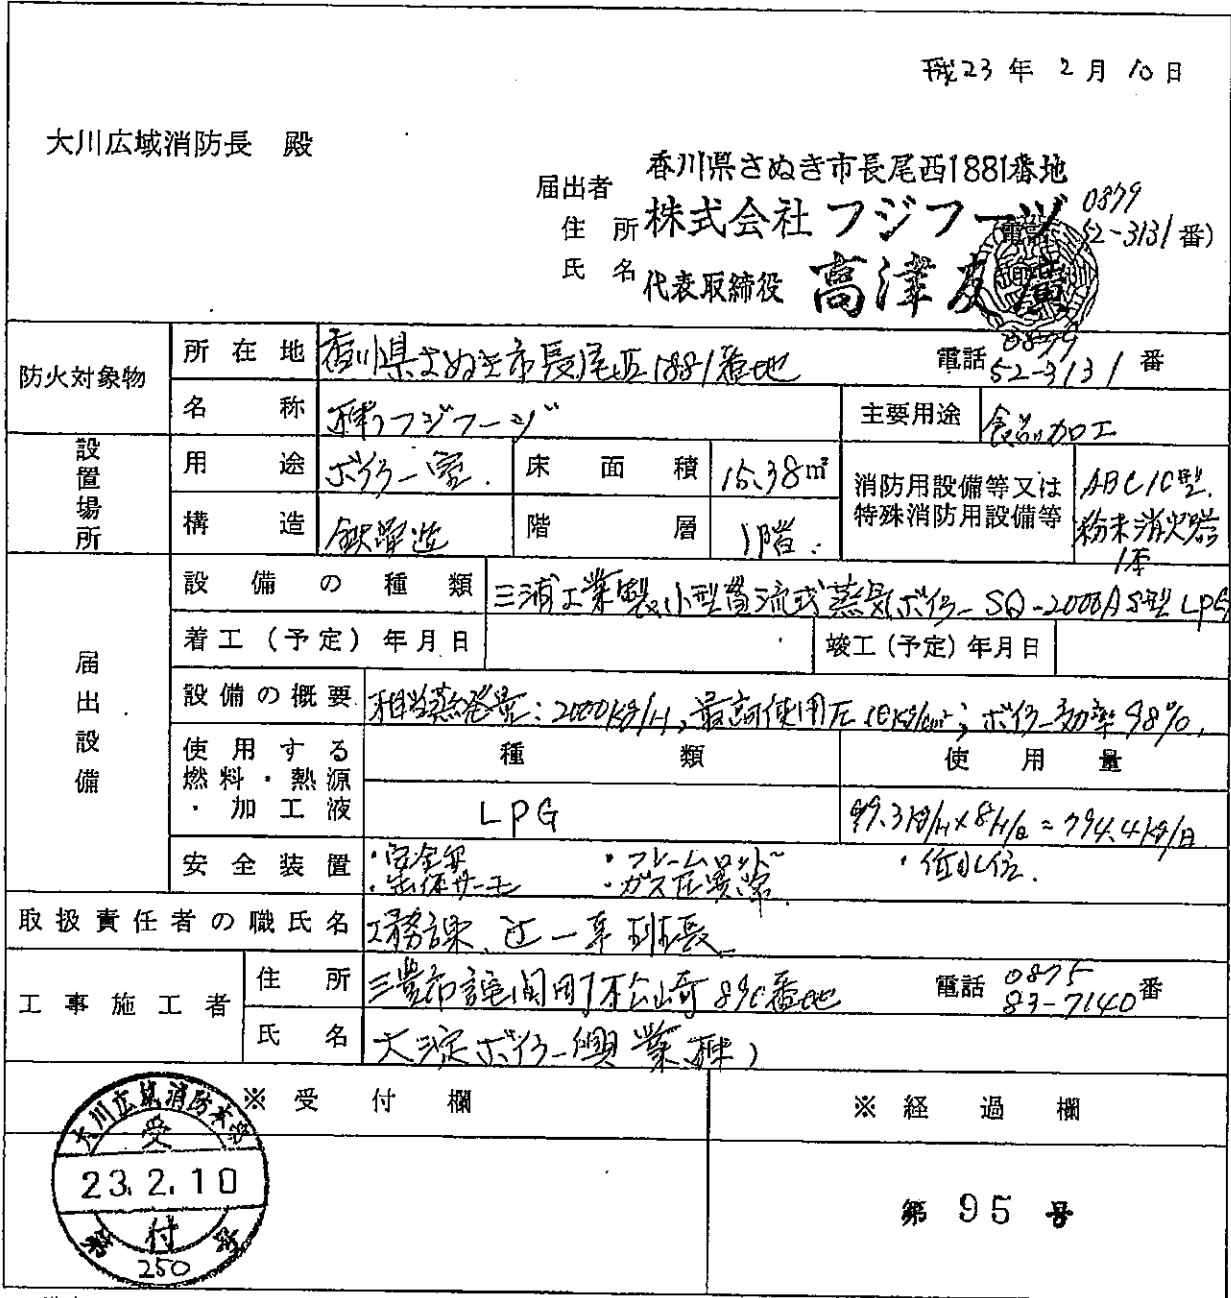 平成23年 2月 10日
大川広域消防長 殿
届出者
香川県さぬき市長尾西1881番地
住 所 株式会社 フジフーヅ (電話 0879 52-3131番)
氏 名 代表取締役 高津友廣
防火対象物
所在地 香川県さぬき市長尾西1881番地 電話 0879 52-3131 番
名称 (株)フジフーヅ 主要用途 食品加工
設置場所
用途 ボイラー室. 床面積 15.38㎡
構造 鉄骨造 階層 1階.
消防用設備等又は特殊消防用設備等
ABC10型.
粉末消火器
1本
届出設備
設備の種類 三浦工業製小型貫流式蒸気ボイラー SQ-2000AS型 LPG
着工(予定)年月日 竣工(予定)年月日
設備の概要 相当蒸発量:2000kg/H, 最高使用圧 10kg/cm², ボイラー効率98%,
使用する燃料・熱源・加工液
種類 使用量
LPG 99.3kg/H×8H/日=794.4kg/日
安全装置 ・安全弁 ・フレームロッド ・低水位.
・缶体サーモ ・ガス圧異常.
取扱責任者の職氏名 工務課 辻一 班長
工事施工者
住所 三豊市詫間町松崎890番地 電話 0875 83-7140 番
氏名 大淀ボイラー興業(株)
※受付欄 ※経過欄
大川広域消防本部
受
23.2.10
付
第 250 号
第 95 号